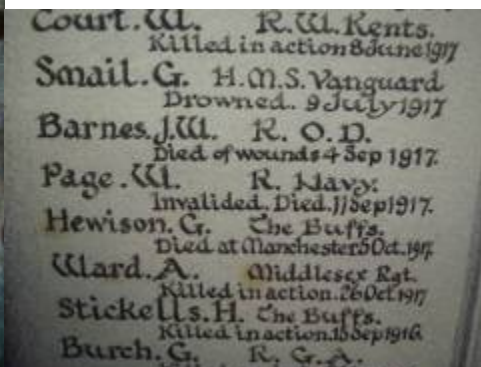 Court. W. R.W. Kents.
Killed in action 8 June 1917
Smail. G. H.M.S. Vanguard
Drowned. 9 July 1917
Barnes. J.W. R. O. D.
Died of wounds 4 Sep 1917.
Page. W. R. Navy.
Invalided. Died. 11 Sep 1917.
Hewison. G. The Buffs.
Died at Manchester 5 Oct. 1917.
Ward. A. Middlesex Rgt.
Killed in action. 26 Oct 1917
Stickells. H. The Buffs.
Killed in action. 15 Sep 1916.
Burch. G. R. G. A.